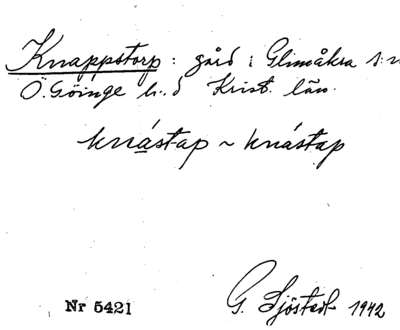 Knappstorp : gård i Glimåkra s:n
Ö. Göinge h..d Krist. län.
knástap ~ knástap
Nr 5421
G. Sjöstedt 1942